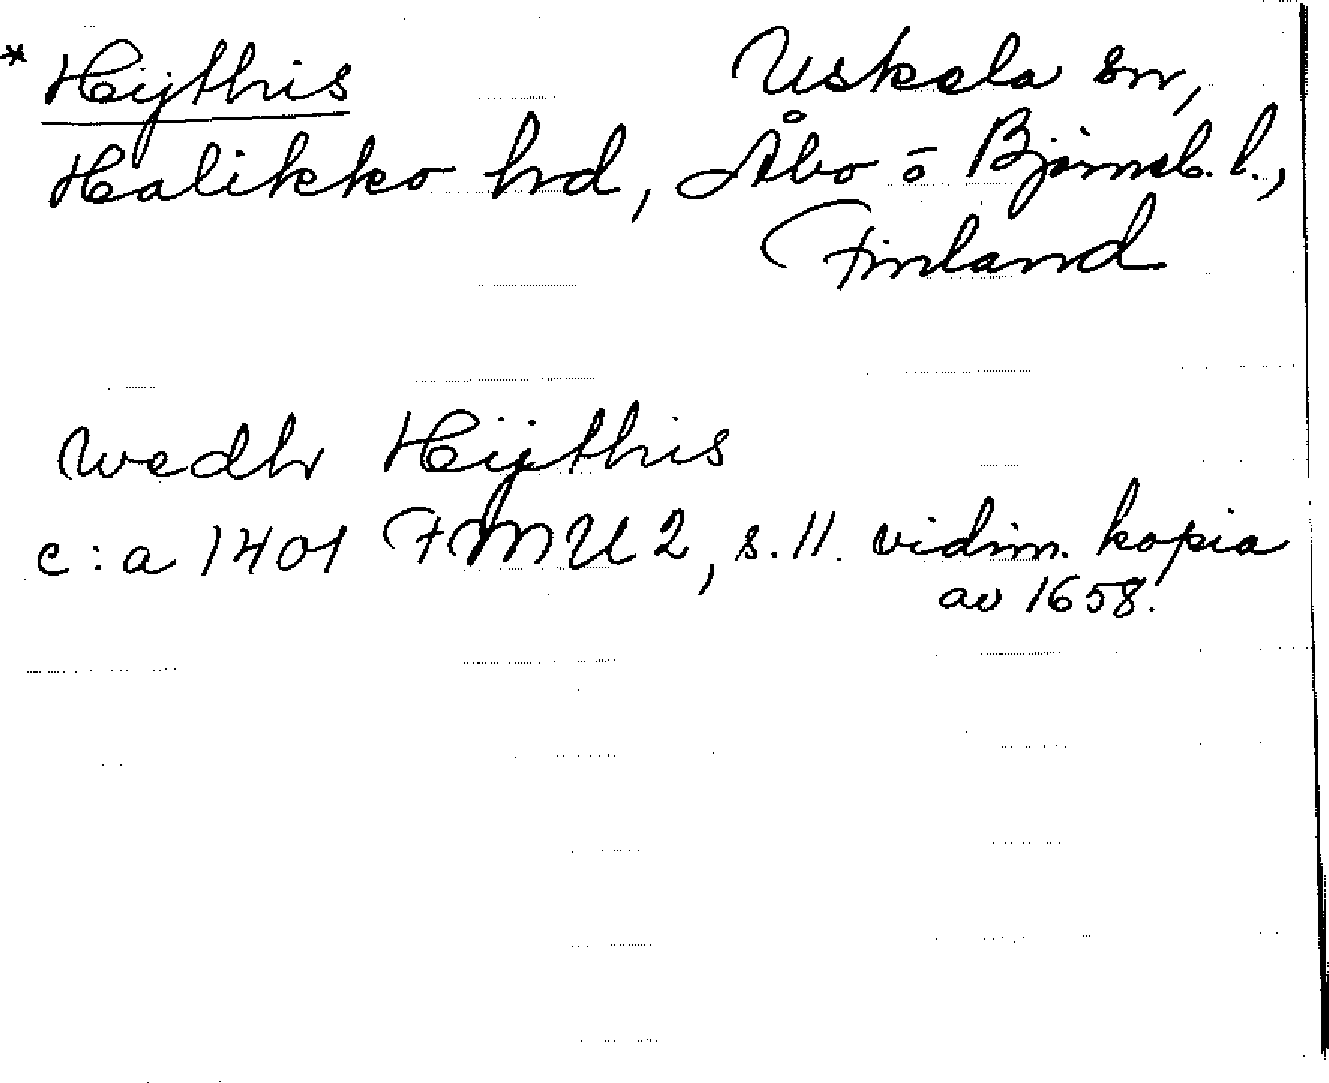 * Hijthis Uskela sn,
Halikko hrd, Åbo ö Björneb. l.,
Finland
wedhr Hijthis
c:a 1401 FMU 2, s. 11. vidim. kopia
av 1658.